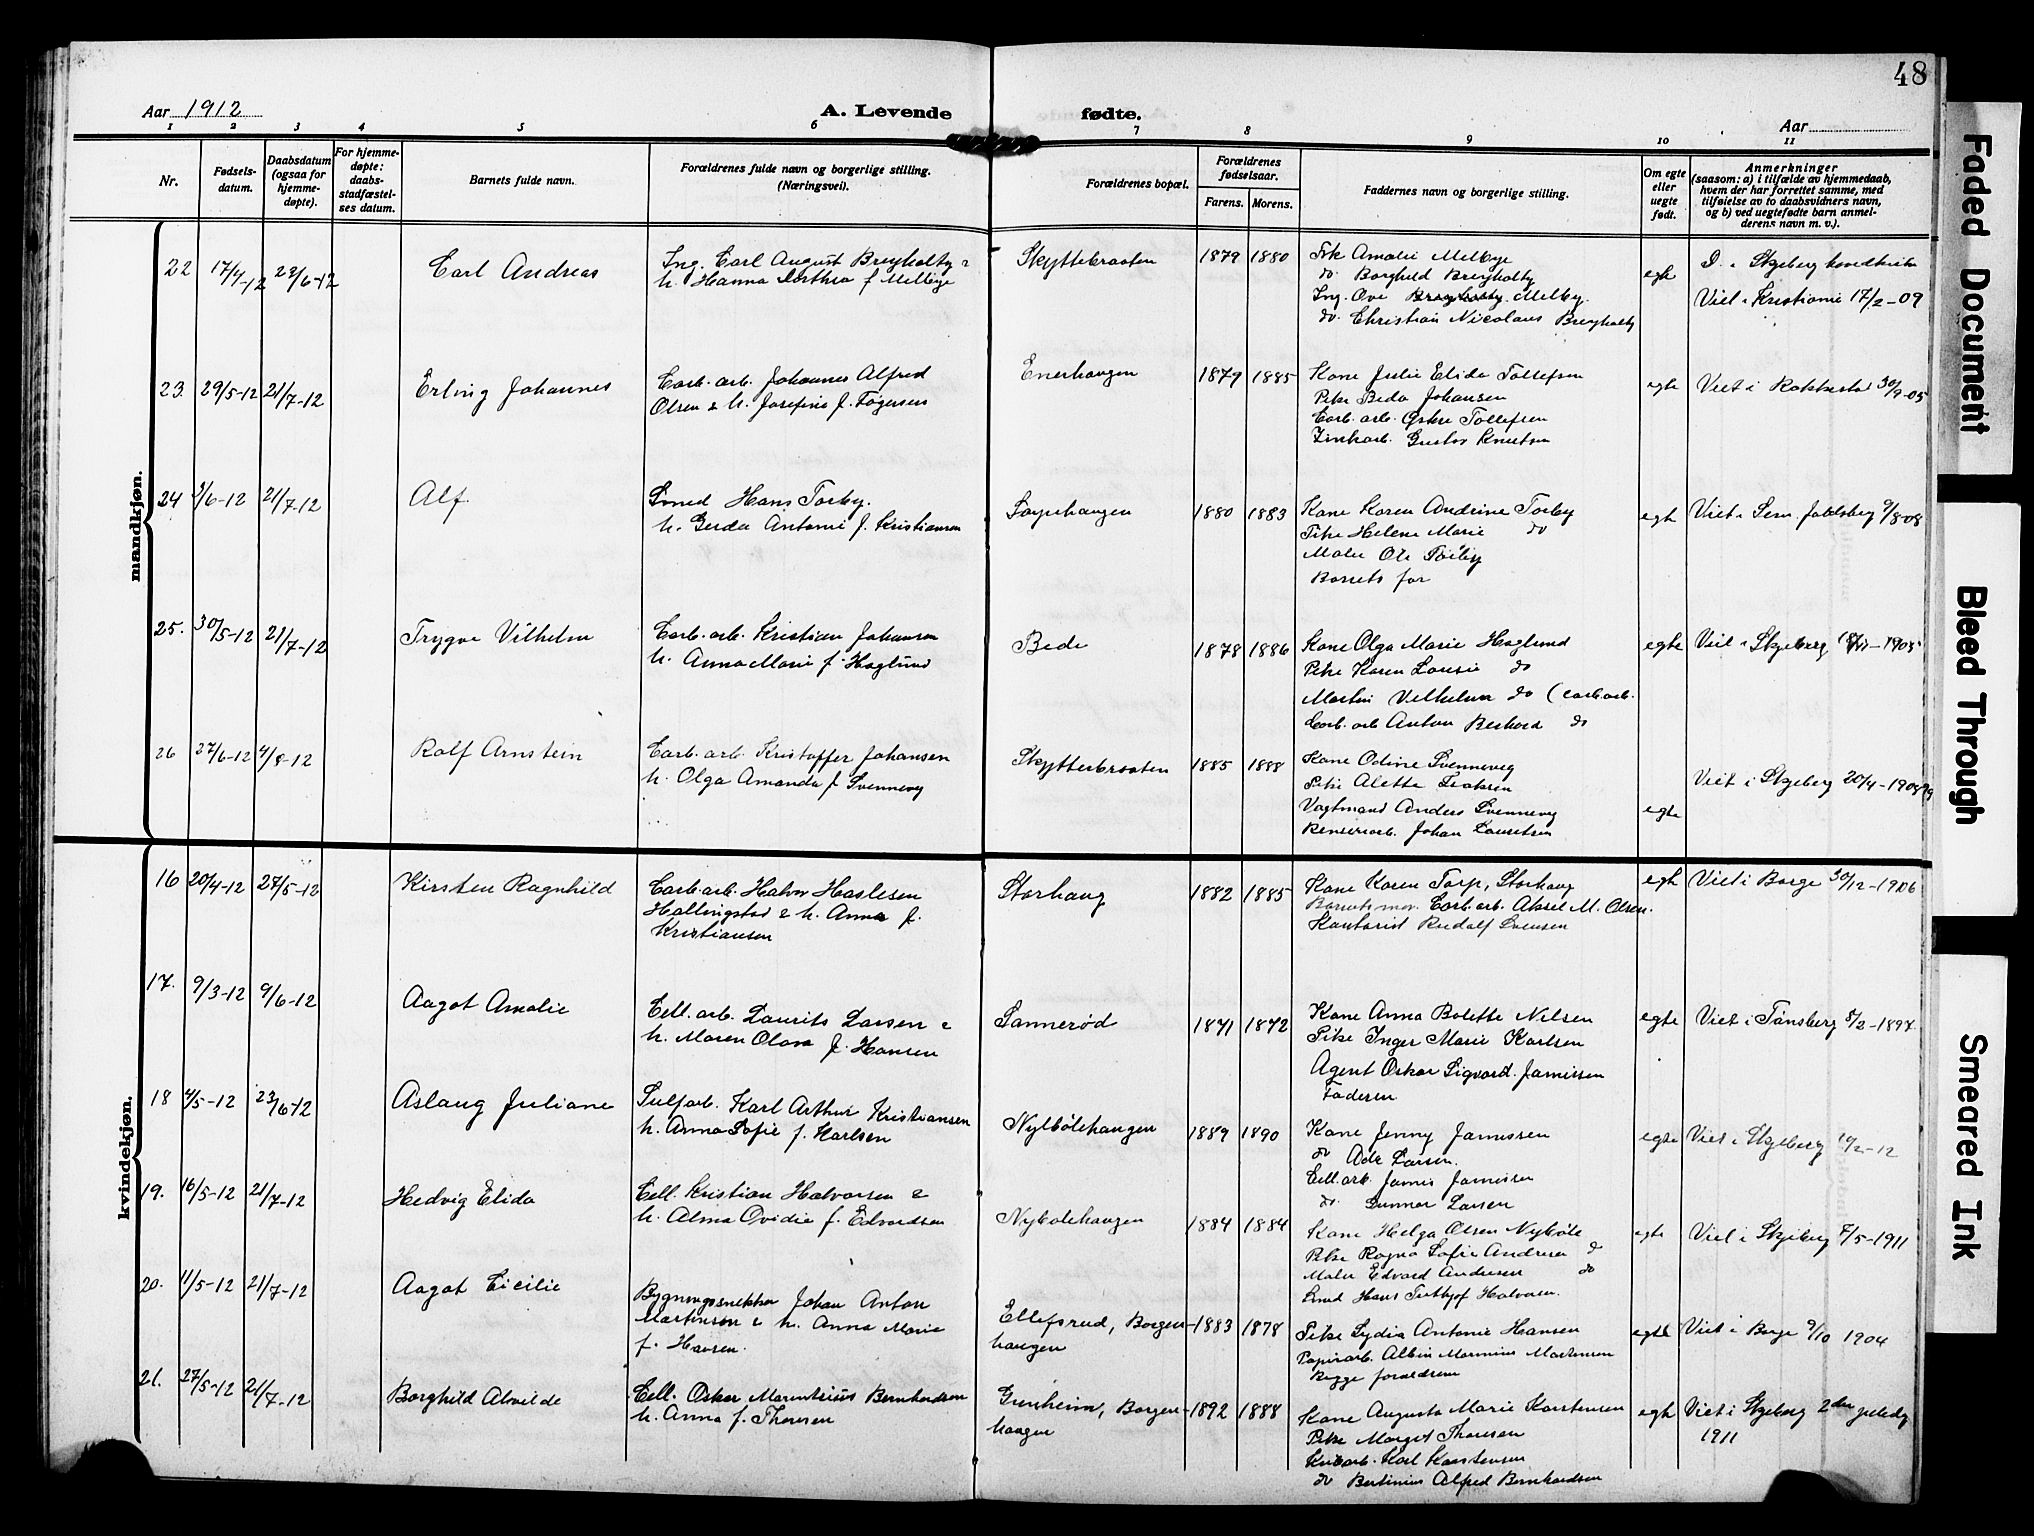 48
Aar 1912
A. Levende fødte.
Aar
1 2 3 4 5 6 7 8 9 10 11
Nr.
Fødsels-
datum.
Daabsdatum
(ogsaa for
hjemme-
døpte).
For hjemme-
døpte:
daabs-
stadfæstel-
ses datum.
Barnets fulde navn.
Forældrenes fulde navn og borgerlige stilling.
(Næringsvei).
Forældrenes bopæl.
Forældrenes
fødselsaar.
Farens. Morens.
Faddernes navn og borgerlige stilling.
Om egte
eller
uegte
født.
Anmerkninger
(saasom: a) i tilfælde av hjemmedaab,
hvem der har forrettet samme, med
tilføielse av to daabsvidners navn,
og b) ved uegtefødte barn anmel-
derens navn m. v.).
mandkjøn.
22 17/4-12 23/6-12
Carl Andreas
Ing. Carl August Breyholtz &
h. Hanna Dorthea f. Melbye
Skyttebraaten
1879 1880
Frk Amalie Melbye
do Borghild Breyholtz
Ing. Ove Melby.
do. Christian Nicolaus Breyholtz
egte
D. i Skjeberg hovedkirke
Viet i Kristiania 17/2-09
23 29/5-12 21/7-12
Erling Johannes
Carb. arb. Johannes Alfred
Olsen & h. Josefine f. Tøgersen
Enerhaugen
1879 1885
Kone Julie Elida Tollefsen
Pike Beda Johansen
Carb. arb. Oskar Tollefsen
Zinkarb. Gustav Knutsen
egte
Viet i Rakkestad 30/9-05
24 /6-12 21/7-12
Alf
Smed Hans Torby.
h. Gerda Antonie f. Kristiansen
Løpehaugen
1880 1883
Kone Karen Andrine Torby
Pike Helene Marie do
Maler Ole Torby
Barnets far
egte
Viet i Sem. Jarlsberg 9/8-08
25. 30/5-12 21/7-12
Trygve Vilhelm
Carb. arb. Kristian Johansen
h. Anna Marie f. Haglund
Bede
1878 1886
Kone Olga Marie Haglund
Pike Karen Lousie do
Martin Vilhelm do (carb. arb.
Carb. arb Anton Berhard do
egte
Viet i Skjeberg 1905
26 27/6-12 4/8-12
Rolf Arnstein
Carb. arb. Kristoffer Johansen
h. Olga Amanda f. Svennevig
Skytterbraaten
1885 1888
Kone Odine Svennevig
Pike Alette Isaksen
Vagtmand Anders Svennevig
Renseriarb. Johan Lauritsen
egte
Viet i Skjeberg 20/4-1909
kvindekjøn.
16 20/4-12 27/5-12
Kirsten Ragnhild
Carb. arb. Halvor Haslesen
Hallingstad & h. Anna f.
Kristiansen
Storhaug
1882 1885
Kone Karen Torp, Storhaug
Barnets mor. Carb. arb. Aksel M. Olsen.
Kontorist Rudolf Svensen
egte
Viet i Borge 30/12-1906
17. 9/3-12 9/6-12
Aagot Amalie
Cell. arb. Laurits Larsen &
h. Maren Olava f. Hansen
Sannerød
1871 1872
Kone Anna Bolette Nilsen
Pike Inger Marie Karlsen
Agent Oskar Sigvard Jamissen
Faderen
egte
Viet i Tønsberg 8/2-1897.
18 4/5-12 23/6-12
Aslaug Juliane
Sulf. arb. Karl Arthur Kristiansen
h. Anna Sofie f. Karlsen
Nybölehaugen
1889 1890
Kone Jenny Jamissen
do Ada Larsen.
Cell. arb. Jamis Jamissen
do. Gunnar Larsen
egte
Viet i Skjeberg /2-12
19. 16/5-12 21/7-12
Hedvig Elida
Cell. Kristian Halvorsen &
h. Alma Ovidie f. Edvardsen
Nybølehaugen
1884 1884
Kone Helga Olsen Nybøle
Pike Ragna Sofie Andresen do
Maler Edvard Andresen do
Smed Hans Frithjof Halvorsen.
egte
Viet i Skjeberg 7/5-1911
20. 11/5-12 21/7-12
Aagot Cicilie
Bygningssnekker Johan Anton
Martinsen & h. Anna Marie
f. Hansen.
Ellefsrud, Borgen-
haugen
1883 1878
Pike Lydia Antonie Hansen
Papirarb. Albin Marinius Martinsen
Begge forældrene
egte
Viet i Borge 9/10 1904
21. 27/5-12 21/7-12
Borghild Alvilde
Cell. Oskar Marentsius Bernhardsen
h. Anna f. Thoresen
Grenheim, Borgen-
haugen
1892 1888
Kone Augusta Marie Karstensen
Pike Margit Thoresen
Karl Karstensen
do Bertinius Alfred Bernhardsen
egte
Viet i Skjeberg 2den juledag
1911
Faded Document
Bleed Through
Smeared Ink